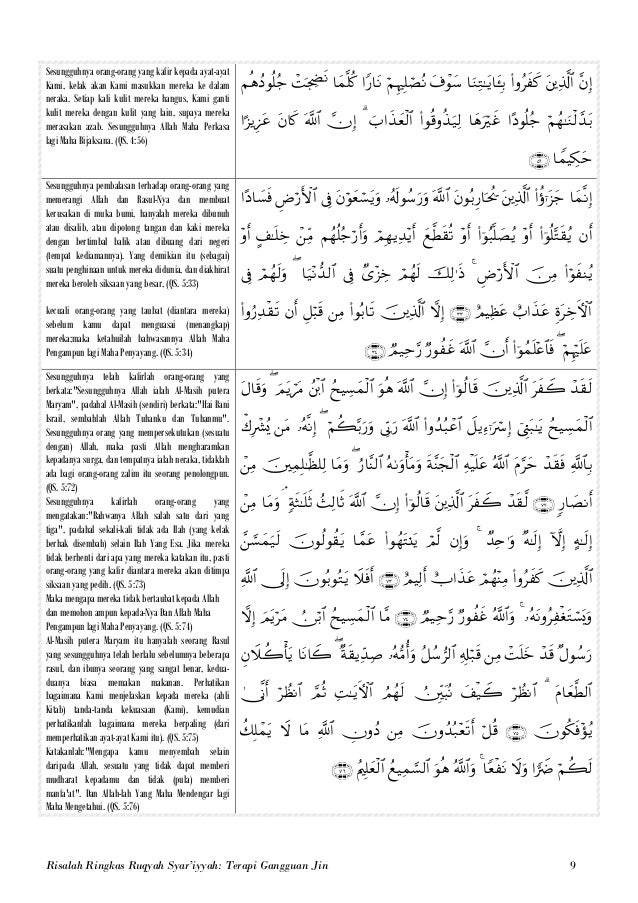 Sesungguhnya orang-orang yang kafir kepada ayat-ayat
Kami, kelak akan Kami masukkan mereka ke dalam
neraka. Setiap kali kulit mereka hangus, Kami ganti
kulit mereka dengan kulit yang lain, supaya mereka
merasakan azab. Sesungguhnya Allah Maha Perkasa
lagi Maha Bijaksana. (QS. 4:56)
إِنَّ ٱلَّذِينَ كَفَرُوا۟ بِـَٔايَـٰتِنَا سَوْفَ نُصْلِيهِمْ نَارًا كُلَّمَا نَضِجَتْ جُلُودُهُم
بَدَّلْنَـٰهُمْ جُلُودًا غَيْرَهَا لِيَذُوقُوا۟ ٱلْعَذَابَ ۗ إِنَّ ٱللَّهَ كَانَ عَزِيزًا
حَكِيمًا ﴿٥٦﴾
Sesungguhnya pembalasan terhadap orang-orang yang
memerangi Allah dan Rasul-Nya dan membuat
kerusakan di muka bumi, hanyalah mereka dibunuh
atau disalib, atau dipotong tangan dan kaki mereka
dengan bertimbal balik atau dibuang dari negeri
(tempat kediamannya). Yang demikian itu (sebagai)
suatu penghinaan untuk mereka didunia, dan diakhirat
mereka beroleh siksaan yang besar, (QS. 5:33)
kecuali orang-orang yang taubat (diantara mereka)
sebelum kamu dapat menguasai (menangkap)
mereka;maka ketahuilah bahwasannya Allah Maha
Pengampun lagi Maha Penyayang. (QS. 5:34)
إِنَّمَا جَزَٰٓؤُا۟ ٱلَّذِينَ يُحَارِبُونَ ٱللَّهَ وَرَسُولَهُۥ وَيَسْعَوْنَ فِى ٱلْأَرْضِ فَسَادًا
أَن يُقَتَّلُوٓا۟ أَوْ يُصَلَّبُوٓا۟ أَوْ تُقَطَّعَ أَيْدِيهِمْ وَأَرْجُلُهُم مِّنْ خِلَـٰفٍ أَوْ
يُنفَوْا۟ مِنَ ٱلْأَرْضِ ۚ ذَٰلِكَ لَهُمْ خِزْىٌ فِى ٱلدُّنْيَا ۖ وَلَهُمْ فِى
ٱلْـَٔاخِرَةِ عَذَابٌ عَظِيمٌ ﴿٣٣﴾ إِلَّا ٱلَّذِينَ تَابُوا۟ مِن قَبْلِ أَن تَقْدِرُوا۟
عَلَيْهِمْ ۖ فَٱعْلَمُوٓا۟ أَنَّ ٱللَّهَ غَفُورٌ رَّحِيمٌ ﴿٣٤﴾
Sesungguhnya telah kafirlah orang-orang yang
berkata:"Sesungguhnya Allah ialah Al-Masih putera
Maryam", padahal Al-Masih (sendiri) berkata:"Hai Bani
Israil, sembahlah Allah Tuhanku dan Tuhanmu".
Sesungguhnya orang yang mempersekutukan (sesuatu
dengan) Allah, maka pasti Allah mengharamkan
kepadanya surga, dan tempatnya ialah neraka, tidaklah
ada bagi orang-orang zalim itu seorang penolongpun.
(QS. 5:72)
Sesungguhnya kafirlah orang-orang yang
mengatakan:"Bahwanya Allah salah satu dari yang
tiga", padahal sekali-kali tidak ada Ilah (yang kelak
berhak disembah) selain Ilah Yang Esa. Jika mereka
tidak berhenti dari apa yang mereka katakan itu, pasti
orang-orang yang kafir diantara mereka akan ditimpa
siksaan yang pedih. (QS. 5:73)
Maka mengapa mereka tidak bertaubat kepada Allah
dan memohon ampun kepada-Nya Dan Allah Maha
Pengampun lagi Maha Penyayang. (QS. 5:74)
Al-Masih putera Maryam itu hanyalah seorang Rasul
yang sesungguhnya telah berlalu sebelumnya beberapa
rasul, dan ibunya seorang yang sangat benar, kedua-
duanya biasa memakan makanan. Perhatikan
bagaimana Kami menjelaskan kepada mereka (ahli
Kitab) tanda-tanda kekuasaan (Kami), kemudian
perhatikanlah bagaimana mereka berpaling (dari
memperhatikan ayat-ayat Kami itu). (QS. 5:75)
Katakanlah:"Mengapa kamu menyembah selain
daripada Allah, sesuatu yang tidak dapat memberi
mudharat kepadamu dan tidak (pula) memberi
manfa'at". Dan Allah-lah Yang Maha Mendengar lagi
Maha Mengetahui. (QS. 5:76)
لَقَدْ كَفَرَ ٱلَّذِينَ قَالُوٓا۟ إِنَّ ٱللَّهَ هُوَ ٱلْمَسِيحُ ٱبْنُ مَرْيَمَ ۖ وَقَالَ
ٱلْمَسِيحُ يَـٰبَنِىٓ إِسْرَٰٓءِيلَ ٱعْبُدُوا۟ ٱللَّهَ رَبِّى وَرَبَّكُمْ ۖ إِنَّهُۥ مَن يُشْرِكْ
بِٱللَّهِ فَقَدْ حَرَّمَ ٱللَّهُ عَلَيْهِ ٱلْجَنَّةَ وَمَأْوَىٰهُ ٱلنَّارُ ۖ وَمَا لِلظَّـٰلِمِينَ مِنْ
أَنصَارٍ ﴿٧٢﴾ لَّقَدْ كَفَرَ ٱلَّذِينَ قَالُوٓا۟ إِنَّ ٱللَّهَ ثَالِثُ ثَلَـٰثَةٍ ۘ وَمَا مِنْ
إِلَـٰهٍ إِلَّآ إِلَـٰهٌ وَٰحِدٌ ۚ وَإِن لَّمْ يَنتَهُوا۟ عَمَّا يَقُولُونَ لَيَمَسَّنَّ
ٱلَّذِينَ كَفَرُوا۟ مِنْهُمْ عَذَابٌ أَلِيمٌ ﴿٧٣﴾ أَفَلَا يَتُوبُونَ إِلَى ٱللَّهِ
وَيَسْتَغْفِرُونَهُۥ ۚ وَٱللَّهُ غَفُورٌ رَّحِيمٌ ﴿٧٤﴾ مَّا ٱلْمَسِيحُ ٱبْنُ مَرْيَمَ إِلَّا
رَسُولٌ قَدْ خَلَتْ مِن قَبْلِهِ ٱلرُّسُلُ وَأُمُّهُۥ صِدِّيقَةٌ ۖ كَانَا يَأْكُلَانِ
ٱلطَّعَامَ ۗ ٱنظُرْ كَيْفَ نُبَيِّنُ لَهُمُ ٱلْـَٔايَـٰتِ ثُمَّ ٱنظُرْ أَنَّىٰ
يُؤْفَكُونَ ﴿٧٥﴾ قُلْ أَتَعْبُدُونَ مِن دُونِ ٱللَّهِ مَا لَا يَمْلِكُ
لَكُمْ ضَرًّا وَلَا نَفْعًا ۚ وَٱللَّهُ هُوَ ٱلسَّمِيعُ ٱلْعَلِيمُ ﴿٧٦﴾
Risalah Ringkas Ruqyah Syar'iyyah: Terapi Gangguan Jin 9